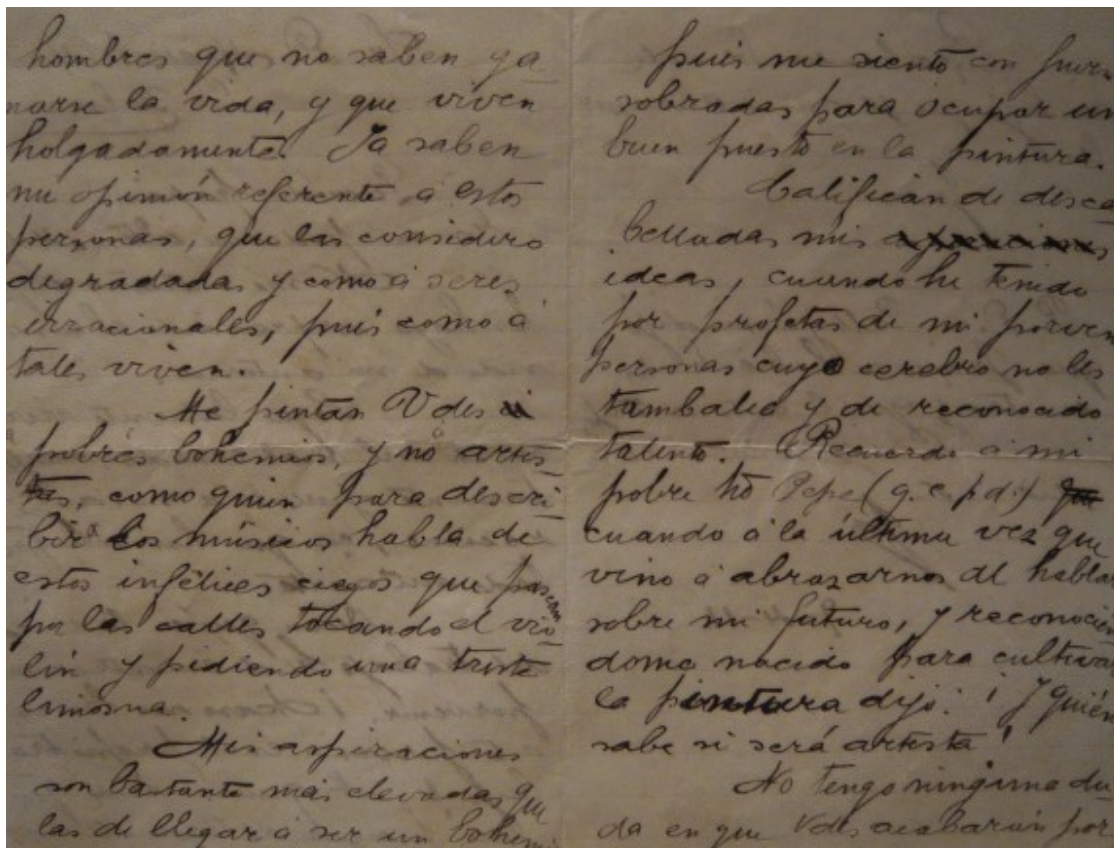 hombres que no saben ga-
narse la vida, y que viven
holgadamente. Ya saben
mi opinión referente á estos
personas, que las considero
degradadas y como á seres
irracionales, pués como á
tales viven.
Me pintan Vdes
pobres bohemios, y no artis-
tas, como quien para descri-
bir a los músicos habla de
estos infélices ciegos que pasean
por las calles tocando el vio-
lín y pidiendo una triste
limosna.
Mis aspiraciones
son bastante más elevadas que
las de llegar á ser un bohemi
pués me siento con fuer
sobradas para ocupar un
buen puesto en la pintura.
Califican de desca-
belladas mis
ideas, cuando he tenido
por profetas de mi porven
personas cuyo cerebro no les
tambaleo y de reconocido
talento. Recuerdo á mi
pobre tío Pepe (q. e. p. d.)
cuando á la última vez que
vino á abrazarnos al hablar
sobre mi futuro, y reconocién
dome nacido para cultivar
la pintura dijo: ¡Y quién
sabe si será artista!
No tengo ninguna du-
da en que Vdes acabarán por